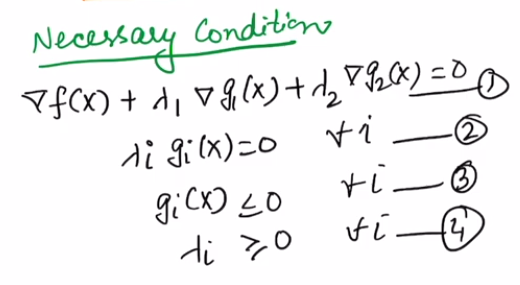 Necessary Condition
∇f(x) + λ₁ ∇g₁(x) + λ₂ ∇g₂(x) = 0 —— ①
λi gi(x) = 0 ∀i —— ②
gi(x) ≤ 0 ∀i —— ③
λi ≥ 0 ∀i —— ④